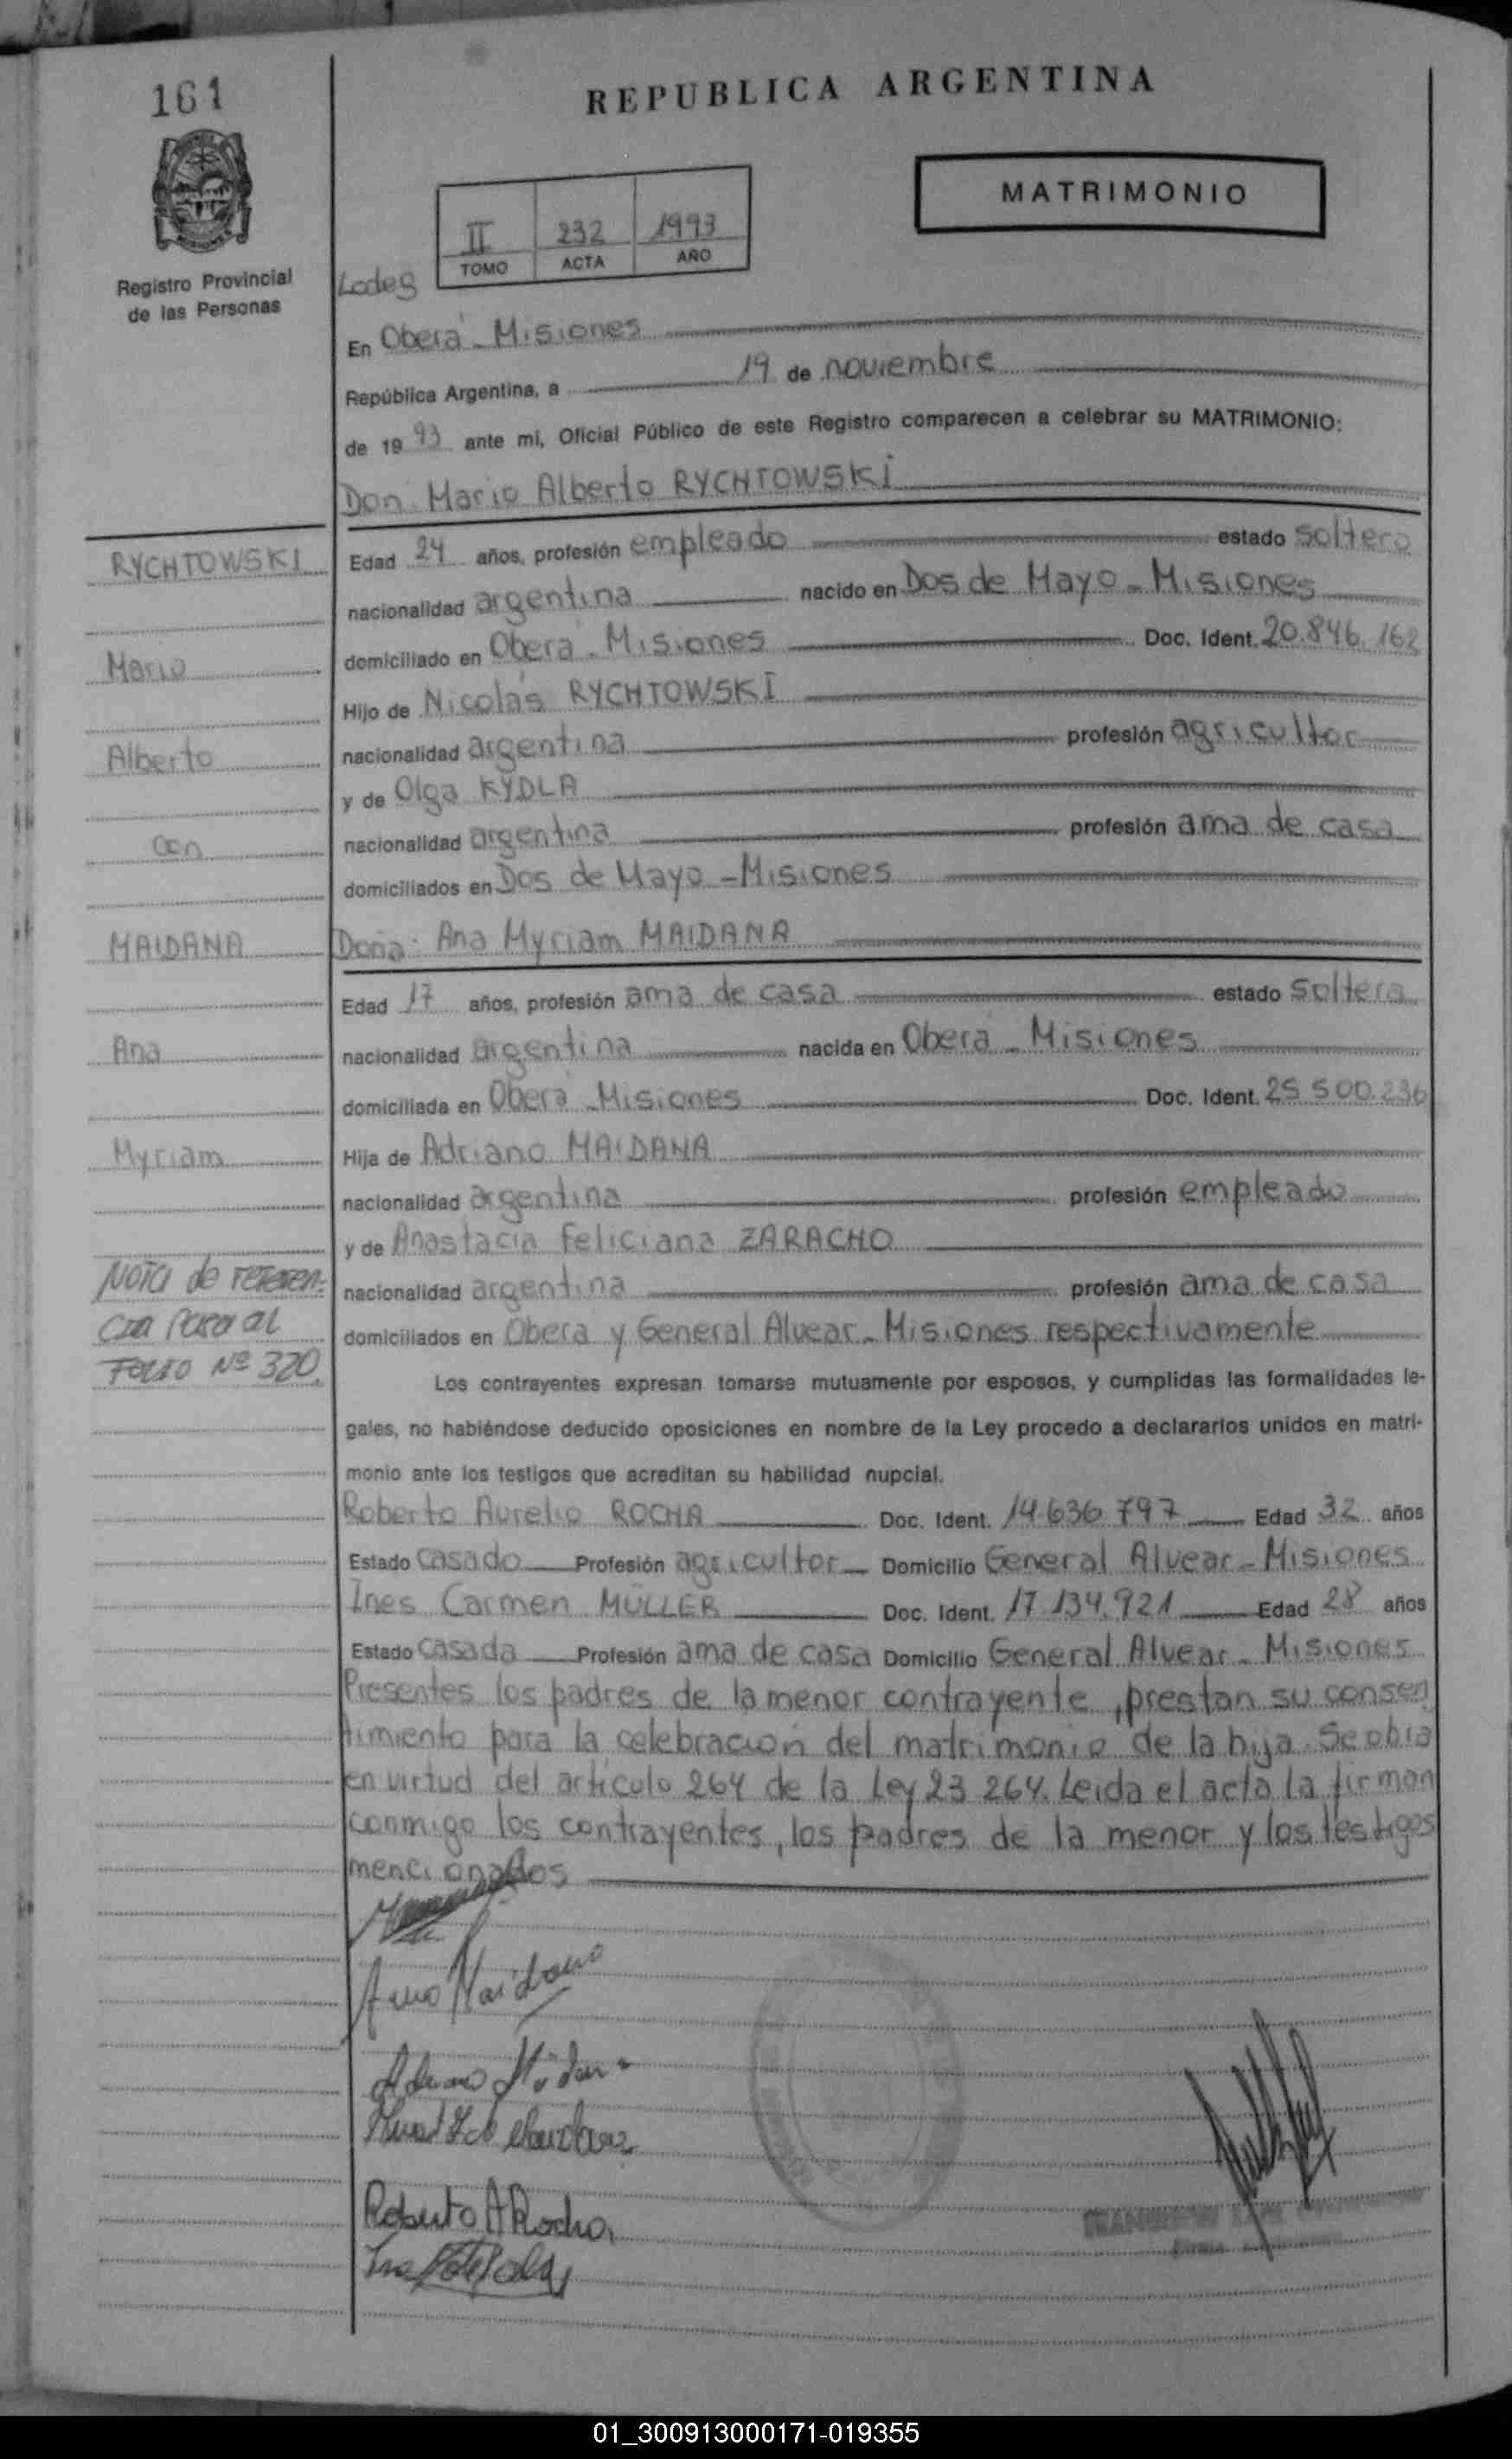 161
REPUBLICA ARGENTINA
MATRIMONIO
II 232 1993
TOMO ACTA AÑO
Registro Provincial
de las Personas
En Oberá - Misiones
República Argentina, a 19 de noviembre
de 19 93 ante mí, Oficial Público de este Registro comparecen a celebrar su MATRIMONIO:
Don: Mario Alberto RYCHTOWSKI
RYCHTOWSKI
Edad 24 años, profesión empleado estado soltero
nacionalidad argentina nacido en Dos de Mayo - Misiones
Mario
domiciliado en Oberá - Misiones Doc. Ident. 20.846.162
Hijo de Nicolás RYCHTOWSKI
Alberto
nacionalidad argentina profesión agricultor
y de Olga KYDLA
con
nacionalidad argentina profesión ama de casa
domiciliados en Dos de Mayo - Misiones
MAIDANA
Doña: Ana Myriam MAIDANA
Edad 17 años, profesión ama de casa estado soltera
Ana
nacionalidad argentina nacida en Oberá - Misiones
domiciliada en Oberá - Misiones Doc. Ident. 25.500.236
Myriam
Hija de Adriano MAIDANA
nacionalidad argentina profesión empleado
y de Anastacia Feliciana ZARACHO
Nota de referen-
cia para al
Folio Nº 320.
nacionalidad argentina profesión ama de casa
domiciliados en Oberá y General Alvear - Misiones respectivamente
Los contrayentes expresan tomarse mutuamente por esposos, y cumplidas las formalidades le-
gales, no habiéndose deducido oposiciones en nombre de la Ley procedo a declararlos unidos en matri-
monio ante los testigos que acreditan su habilidad nupcial.
Roberto Aurelio ROCHA Doc. Ident. 14.636.797 Edad 32 años
Estado casado Profesión agricultor Domicilio General Alvear - Misiones
Ines Carmen MÜLLER Doc. Ident. 17.134.921 Edad 28 años
Estado casada Profesión ama de casa Domicilio General Alvear - Misiones
Presentes los padres de la menor contrayente, prestan su consen
timiento para la celebración del matrimonio de la hija. Se obra
en virtud del artículo 264 de la Ley 23.264. Leída el acta la firman
conmigo los contrayentes, los padres de la menor y los testigos
mencionados
Ana Maidana
Roberto A Rocha
01_300913000171-019355